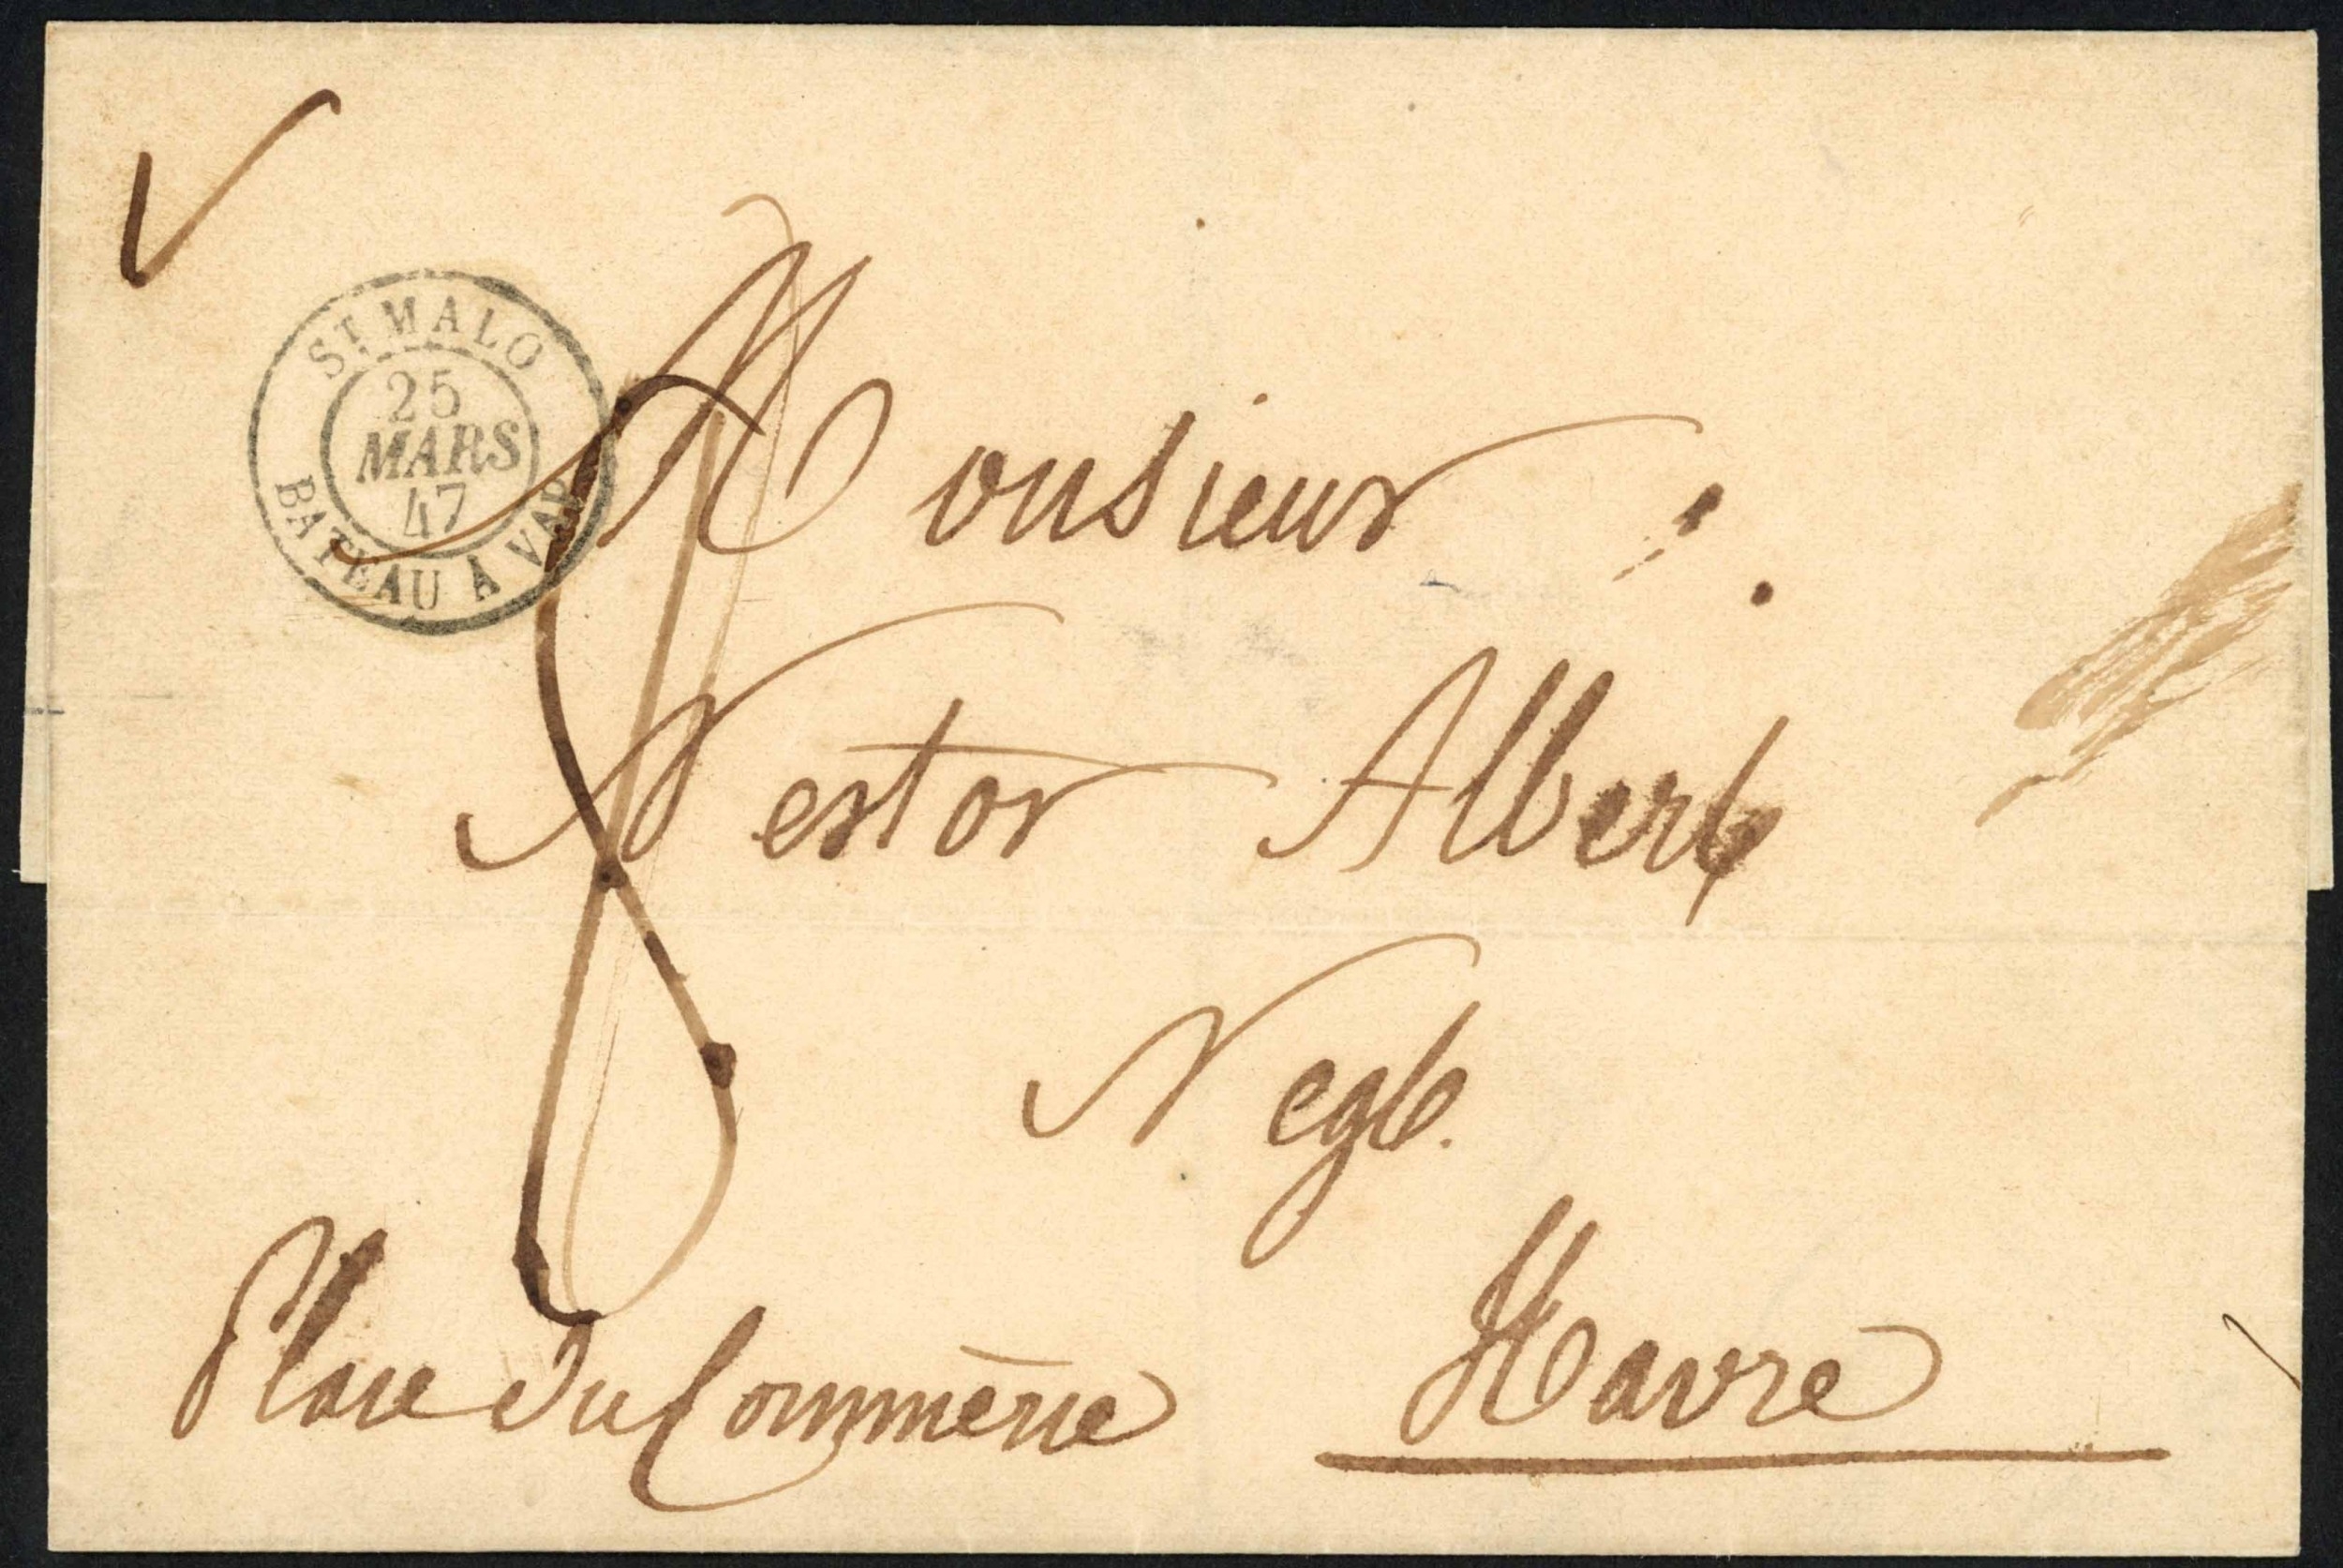 St MALO
25
MARS
47
BATEAU À VAP.
8
Monsieur
Nestor Albert
Negt.
Place du Commerce
Havre